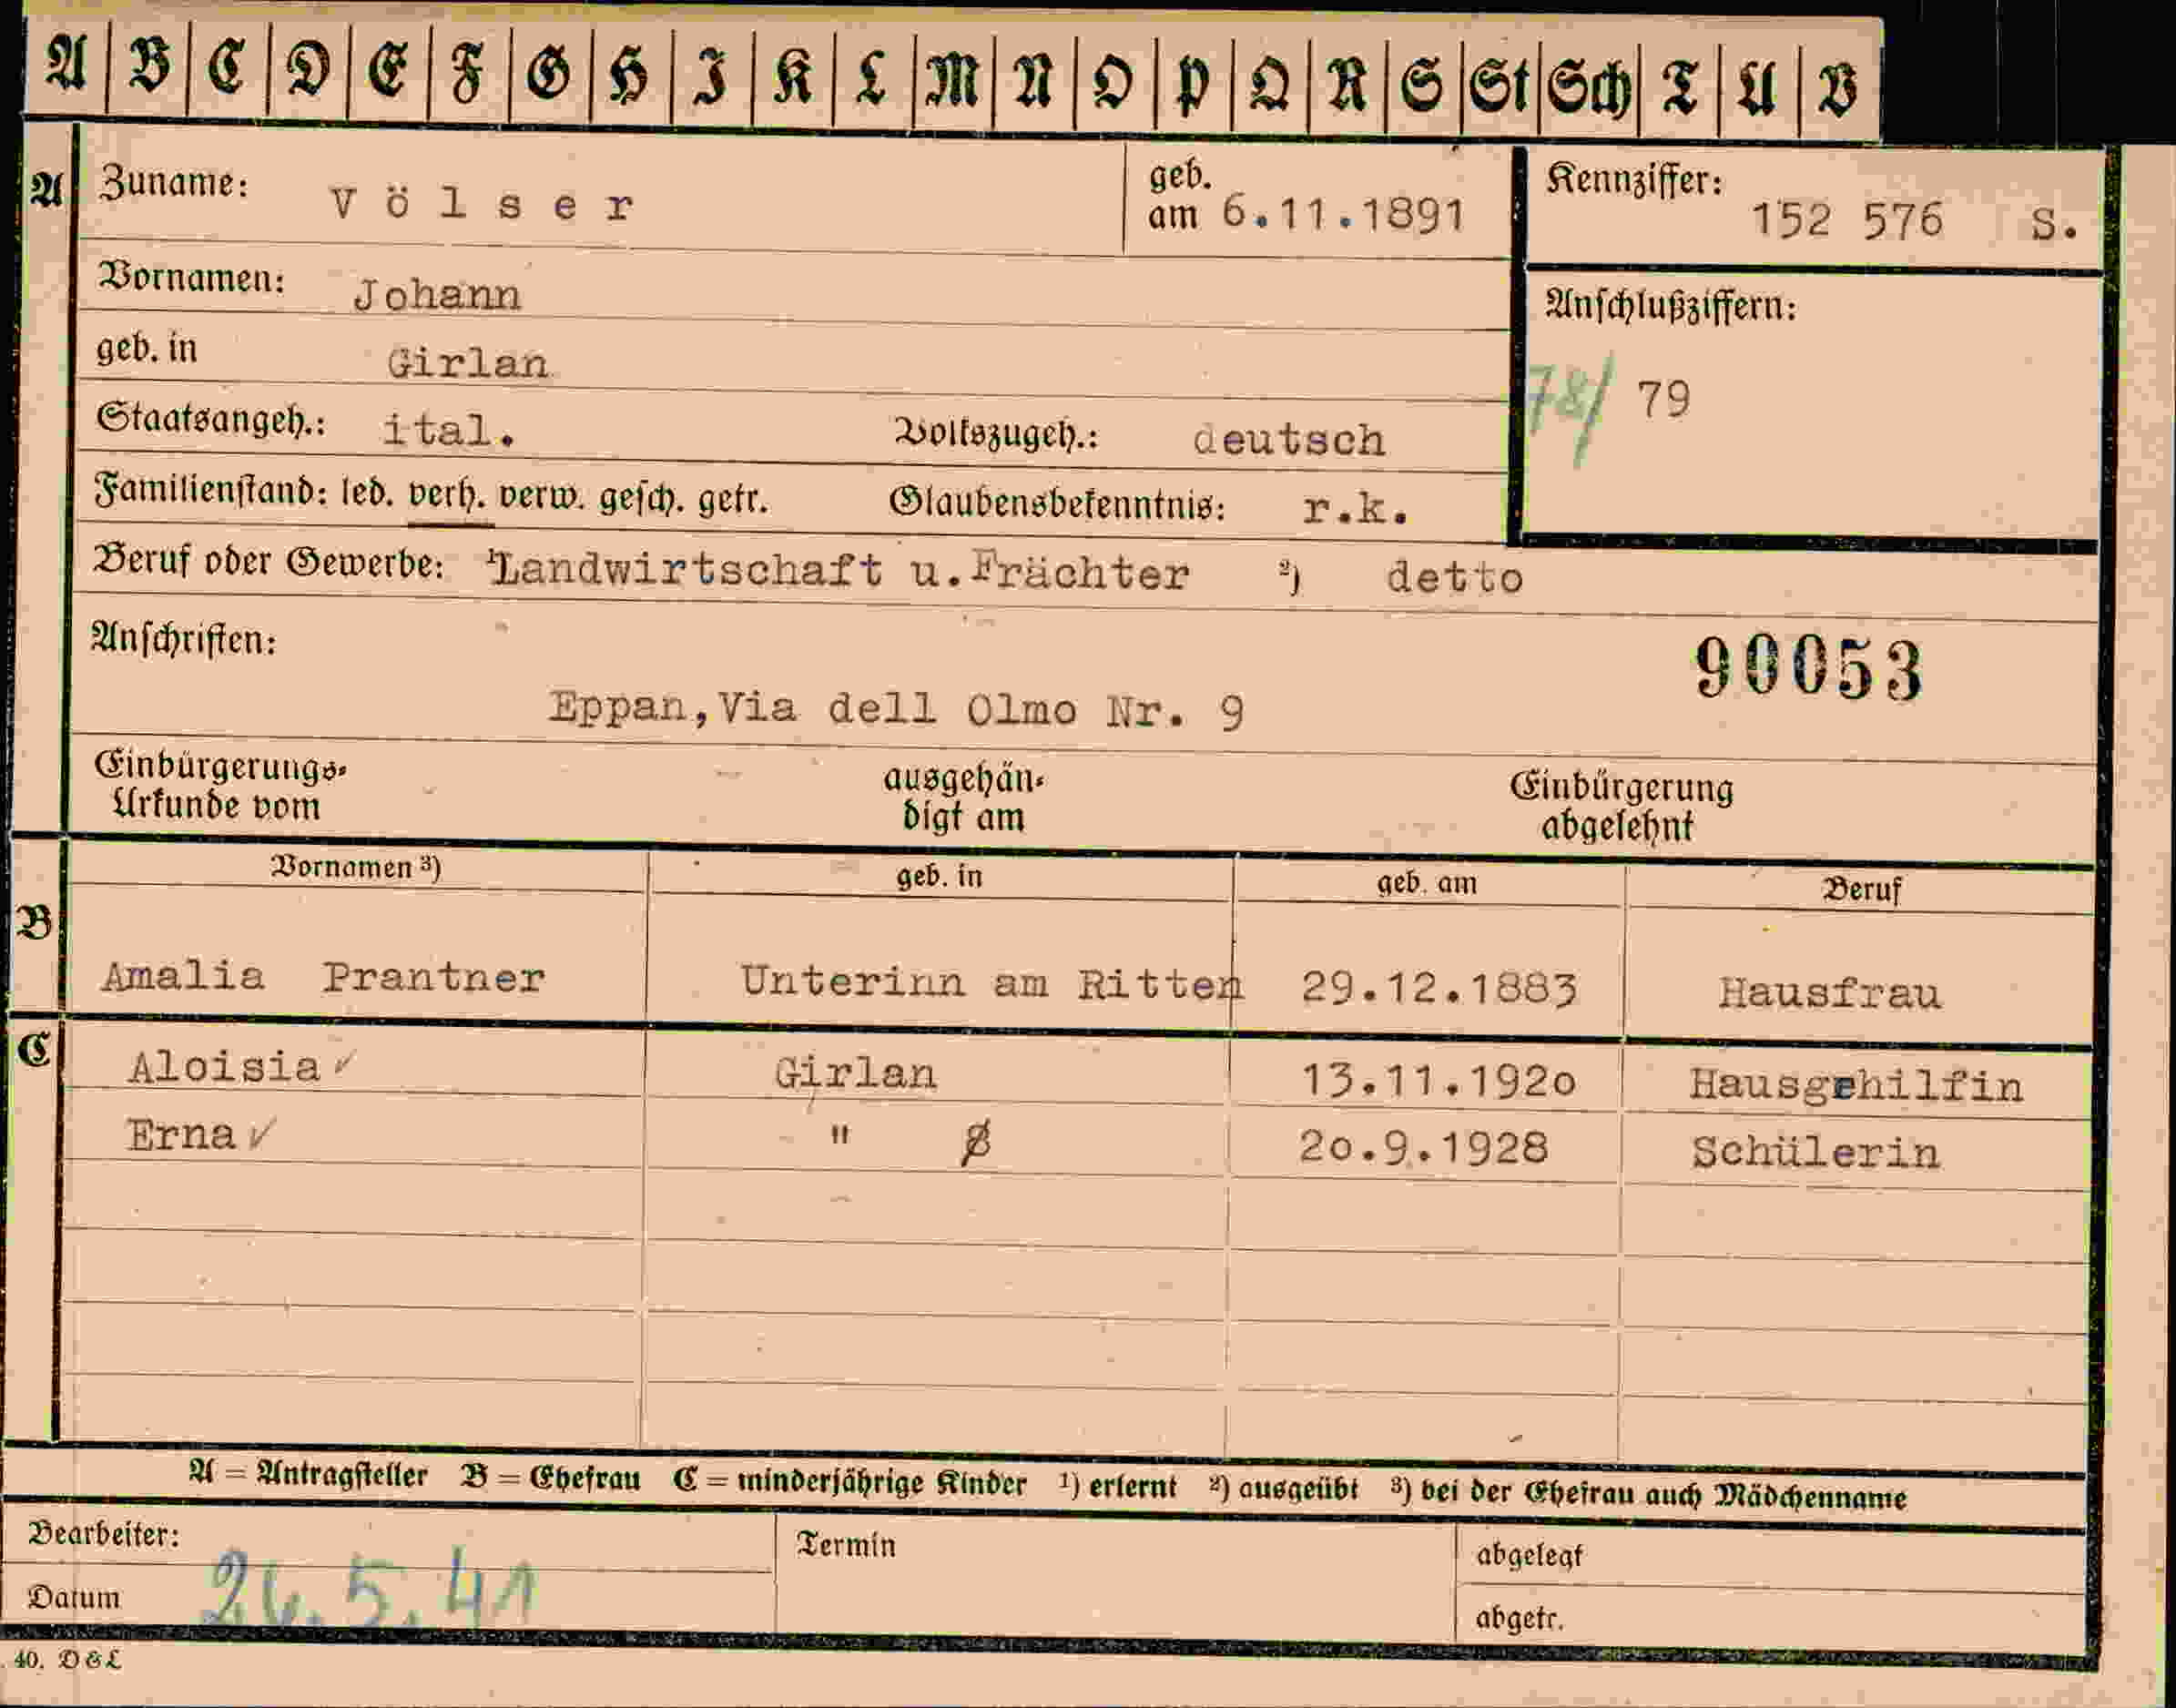 A B C D E F G H I K L M N O P Q R S St Sch T U V
A Zuname: Völser geb. am 6.11.1891 Kennziffer: 152 576 S.
Vornamen: Johann Anschlußziffern:
geb. in Girlan 78/ 79
Staatsangeh.: ital. Volkszugeh.: deutsch
Familienstand: led. verh. verw. gesch. getr. Glaubensbekenntnis: r.k.
Beruf oder Gewerbe: 1) Landwirtschaft u.Frächter 2) detto
Anschriften: 90053
Eppan,Via dell Olmo Nr. 9
Einbürgerungs- ausgehän- Einbürgerung
Urkunde vom digt am abgelehnt
Vornamen 3) geb. in geb. am Beruf
B Amalia Prantner Unterinn am Ritten 29.12.1883 Hausfrau
C Aloisia ✓ Girlan 13.11.1920 Hausgehilfin
Erna ✓ " 20.9.1928 Schülerin
A = Antragsteller B = Ehefrau C = minderjährige Kinder 1) erlernt 2) ausgeübt 3) bei der Ehefrau auch Mädchenname
Bearbeiter: Termin abgelegt
Datum 26.5.41 abgetr.
40. D & L